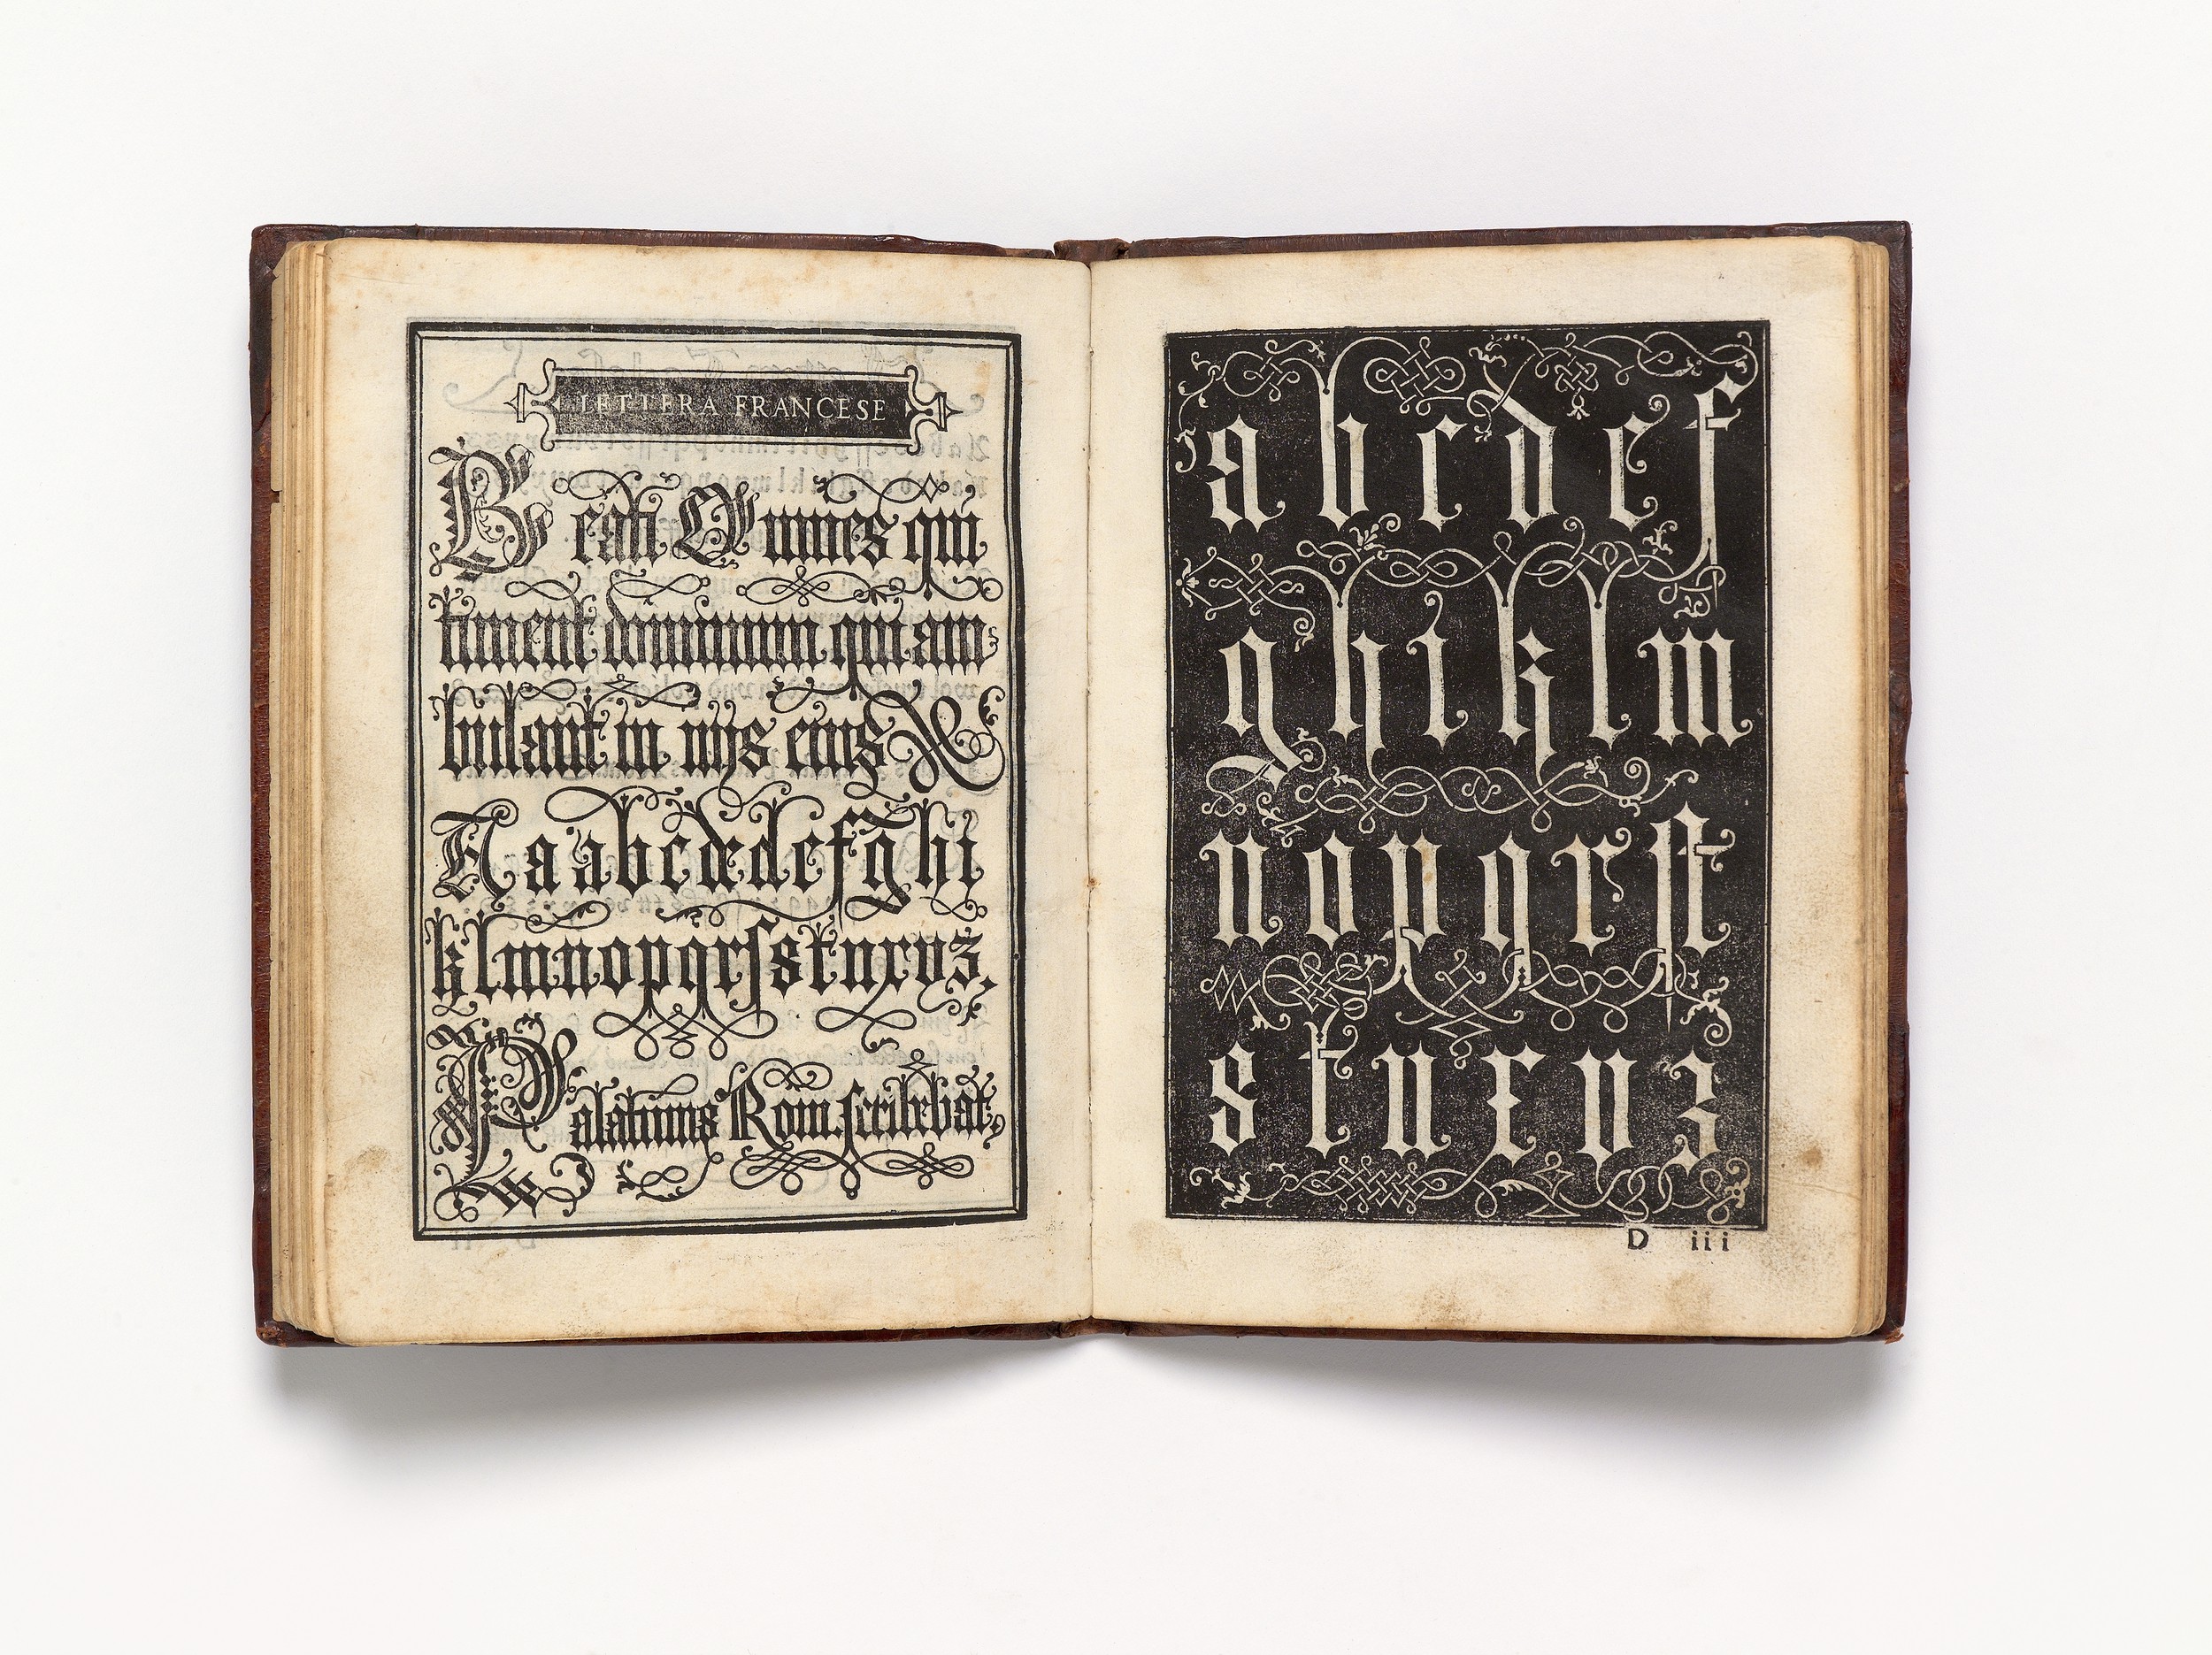 LETTERA FRANCESE
Beati Omnes qui
timent dominum qui am
bulant in vijs eius &
A a a b c d e d e f g h i
k l m n o p q r ſ s t u x v z,
Palatinus Rom. scribebat,
a b c d e f
g h i k l m
n o p q r ſt
s t u x v z
D iii